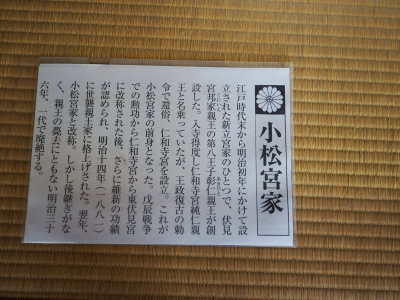 小松宮家
江戸時代末から明治初年にかけて設
立された新立宮家のひとつで、伏見
宮邦家親王の第八王子彰仁親王が創
設した。入寺得度し仁和寺宮純仁親
王と名乗っていたが、王政復古の勅
令で還俗、仁和寺宮を設立。これが
小松宮家の前身となった。戊辰戦争
での勲功から仁和寺宮から東伏見宮
に改称された後、さらに維新の功績
が認められ、明治十四年(一八八一)
に世襲親王家に格上げされた。翌年、
小松宮家と改称。しかし後継ぎがな
く、親王の薨去にともない明治三十
六年、一代で廃絶する。